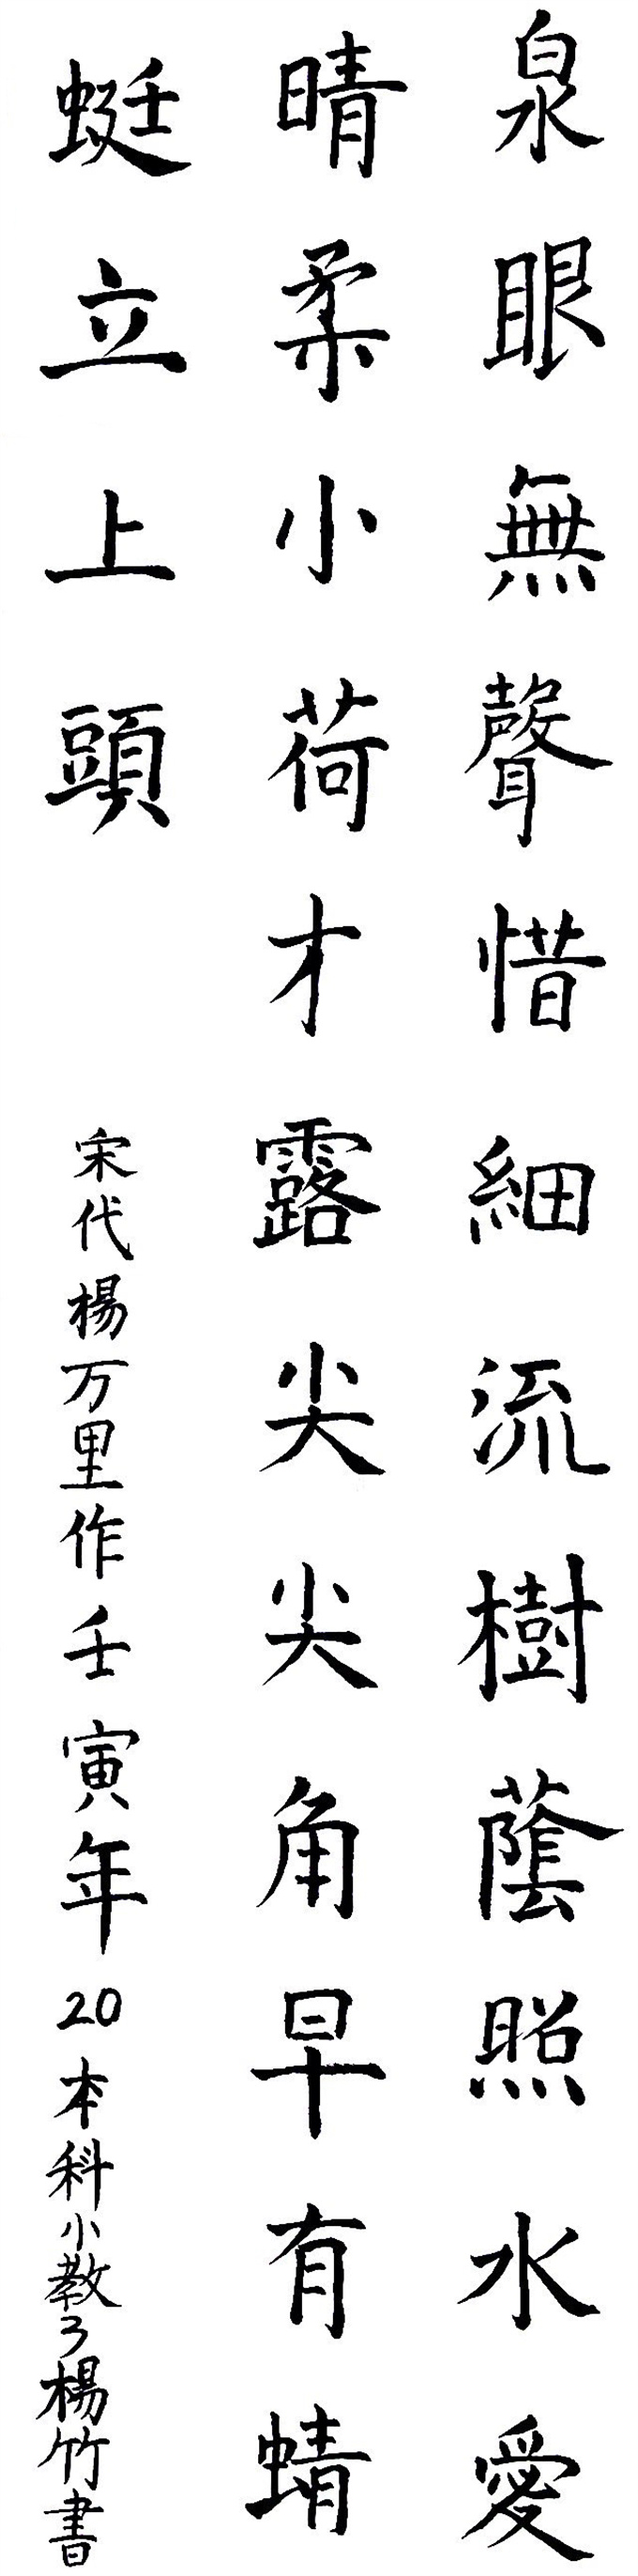 泉眼無聲惜細流樹蔭照水愛
晴柔小荷才露尖尖角早有蜻
蜓立上頭
宋代楊万里作壬寅年20本科小教3楊竹書